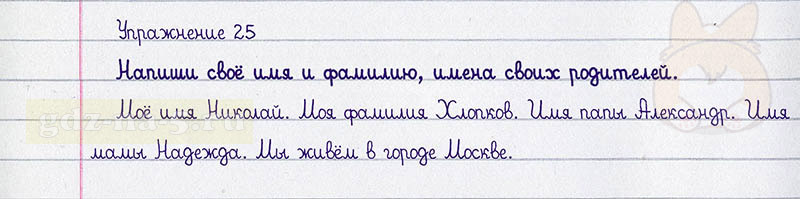 Упражнение 25
Напиши своё имя и фамилию, имена своих родителей.
Моё имя Николай. Моя фамилия Хлопков. Имя папы Александр. Имя
мамы Надежда. Мы живём в городе Москве.
gdz-na-5.ru